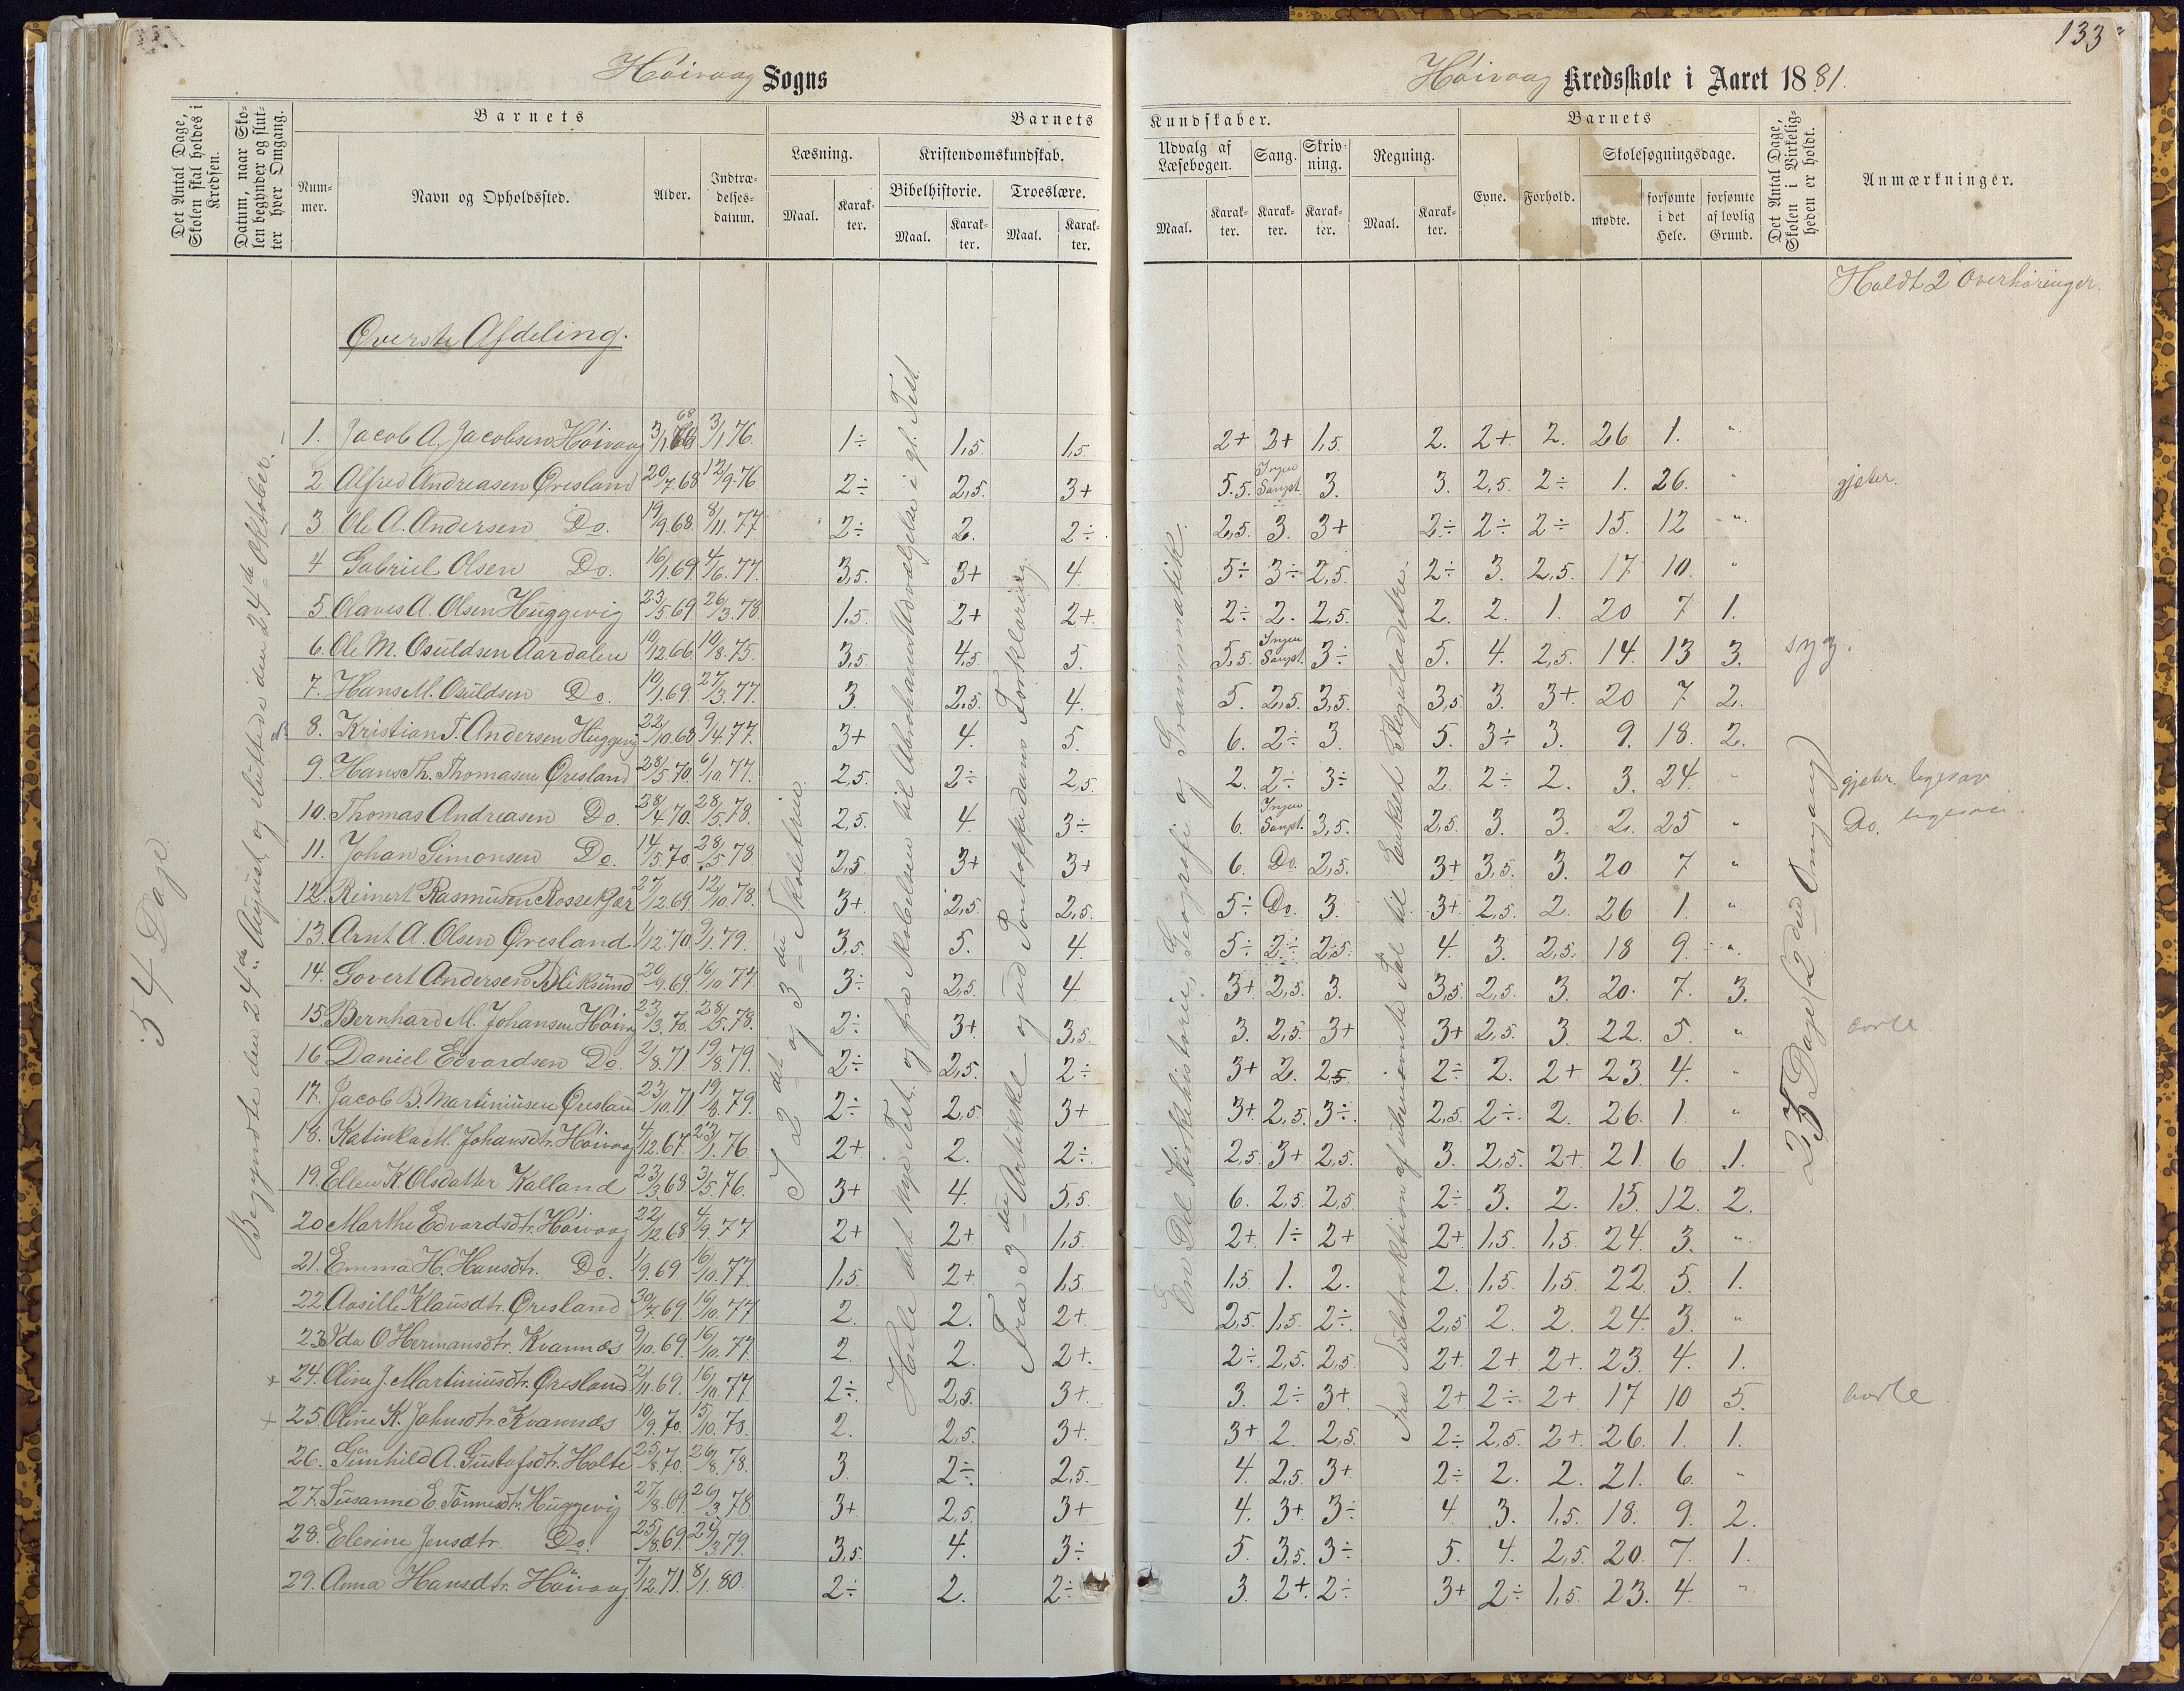 133
Höivaag Sogns
Höivaag Kredsskole i Aaret 1881.
Det Antal Dage, Skolen skal holdes i Kredsen.
Datum, naar Skolen begynder og slutter hver Omgang.
Barnets
Barnets
Kundskaber.
Barnets
Det Antal Dage, Skolen i Virkeligheden er holdt.
Anmærkninger.
Nummer.
Navn og Opholdssted.
Alder.
Indtrædelsesdatum.
Læsning.
Kristendomskundskab.
Udvalg af Læsebogen.
Sang.
Skrivning.
Regning.
Evne.
Forhold.
Skolesøgningsdage.
Bibelhistorie.
Troeslære.
Maal. Karakter. Maal. Karakter. Maal. Karakter.
Maal. Karakter. Karakter. Karakter. Maal. Karakter. mødte. forsømte i det Hele. forsømte af lovlig Grund.
Holdt 2 Overhöringer.
Øverste Afdeling.
54 Dage
Begyndte den 24de August og sluttede den 24de Oktober.
I 2det og 3die Skoletrin
Hele det nye Test. og fra Skabelsen til Abrahams Udvælgelse i gl. Test.
Fra 3die Artikkel og ud Pontoppidans Forklaring.
En Del Kirkehistorie, Geografi og Grammatik.
Fra Subtraktion af ubenævnte Tal til Enkelt Reguladetri.
23 Dage (2den Omgang)
1. Jacob A. Jacobsen Höivaag 3/1 68 3/1 76. 1÷ 1,5. 1,5. 2+ 2+ 1,5. 2. 2+. 2. 26 1. "
2. Alfred Andreasen Øresland 20/7.68 12/9.76 2÷ 2,5. 3+ 5.5. Ingen Sangst. 3. 3. 2,5. 2÷ 1. 26. " gjeter.
3 Ole A. Andersen Do. 19/9.68. 8/11.77 2÷ 2. 2÷ 2,5. 3. 3+ 2÷ 2÷ 2÷ 15. 12 "
4 Gabriel Olsen Do. 16/1.69 4/6.77. 3,5. 3+ 4. 5÷ 3÷ 2,5. 2÷ 3. 2,5. 17 10. "
5. Olaves A. Olsen Huggevig 23/5.69 26/3.78. 1,5. 2+ 2+. 2÷ 2. 2,5. 2. 2. 1. 20 7 1.
6. Ole M. Osuldsen Aardalen 10/12.66. 10/8.75. 3,5. 4,5. 5. 5,5. Ingen Sangst. 3÷ 5. 4. 2,5. 14. 13 3. syg.
7. Hans M. Osuldsen Do. 10/1.69. 27/3.77. 3. 2,5. 4. 5. 2,5. 3,5. 3,5 3. 3+. 20 7 2.
8. Kristian T. Andersen Huggevig 22/10.68 9/4.77. 3+ 4. 5. 6. 2÷ 3. 5. 3÷ 3. 9. 18. 2.
9. Hans Th. Thomasen Øresland 28/5.70. 6/10.77. 2,5. 2÷ 2,5. 2. 2÷ 3÷ 2. 2÷ 2. 3. 24. " gjeter ligesaa
10. Thomas Andreasen Do. 28/4.70. 28/5.78. 2,5. 4. 3÷ 6. Ingen Sangst. 3,5. 2,5. 3. 3. 2. 25 " Do. ligesaa
11. Johan Simonsen Do. 14/5.70 28/5.78. 2,5 3+ 3+ 6. Do. 2,5. 3+ 3,5. 3. 20. 7 "
12. Reinert Rasmusen Rossekjær 27/12.69 12/10.78. 3+ 2,5. 2,5. 5÷ Do. 3. 3+. 2,5. 2. 26 1. "
13. Arnt A. Olsen Øresland 1/12.70 9/1.79. 3,5. 5. 4. 5÷ 2÷ 2,5. 4. 3. 2,5. 18 9. "
14. Govert Andersen Bliksund 20/9.69. 16/10.77 3÷ 2,5. 4 3+ 2,5. 3. 3,5 2,5. 3. 20. 7. 3.
15. Bernhard M. Johansen Höivaag 23/3.70. 28/5.78. 2÷ 3+ 3,5. 3. 2,5. 3+ 3+ 2,5. 3. 22. 5. " borte
16 Daniel Edvardsen Do. 2/8.71 19/8.79. 2÷ 2,5. 2÷ 3+ 2. 2,5 2÷ 2. 2+ 23. 4. "
17. Jacob B. Martiniusen Øresland 23/10.71 19/8.79. 2÷ 2,5 3+ 3+ 2,5. 3÷ 2,5 2÷. 2. 26. 1. "
18. Katinka M. Johansdtr. Höivaag 4/12.67 23/1.76. 2+ 2. 2÷ 2,5. 3+. 2,5. 3. 2,5. 2+ 21. 6 1.
19. Ellen K. Olsdatter Kalland 23/3.68. 3/5.76. 3+ 4. 5,5. 6. 2,5. 2,5. 2÷ 3. 2. 15. 12. 2.
20 Marthe Edvardsdtr. Höivaag 22/12.68 4/9.77 2+ 2+ 1,5. 2+. 1÷ 2+ 2+ 1,5. 1,5. 24. 3. "
21. Emma H. Hansdtr. Do. 1/9.69. 16/10.77. 1,5. 2+ 1,5. 1,5 1. 2. 2. 1,5. 1,5. 22. 5. 1.
22 Aasille Klausdtr. Øresland 30/7.69 16/10.77 2. 2. 2+ 2,5. 1,5. 2÷ 2,5 2. 2. 24. 3. "
23. Ida O. Hermansdtr. Kvannes 9/10.69. 16/10.77. 2. 2. 2+. 2÷ 2,5. 2,5. 2+. 2+. 2+. 23. 4. 1.
24. Oline J. Martiniusdtr. Øresland 2/11.69. 16/10.77 2÷ 2,5. 3+ 3. 2÷ 3+ 2+ 2÷ 2+ 17 10 5. borte
25. Oline K. Johnsdtr. Kvannes 10/9.70. 15/10.78. 2. 2,5. 3+. 3+. 2. 2,5. 2÷ 2,5. 2+. 26. 1. 1.
26. Gunhild A. Gustafsdtr. Holte 25/8.70. 26/8.78. 3. 2÷ 2,5. 4. 2,5. 3+ 2÷ 2. 2. 21. 6. "
27. Susanne E. Tönnesdtr. Huggevig 27/8.69. 26/3.78 3+. 2,5. 3+ 4. 3+ 3÷ 4. 3. 1,5. 18. 9. 2.
28. Elevine Jensdtr. Do. 25/8.69. 24/3.79. 3,5. 4. 3÷ 5. 3,5. 3÷ 5. 4. 2,5. 20. 7. 1.
29. Anna Hansdtr. Höivaag 7/12.71. 8/1.80. 2÷ 2. 2÷ 3. 2+. 2÷ 3+ 2÷ 1,5. 23. 4. "